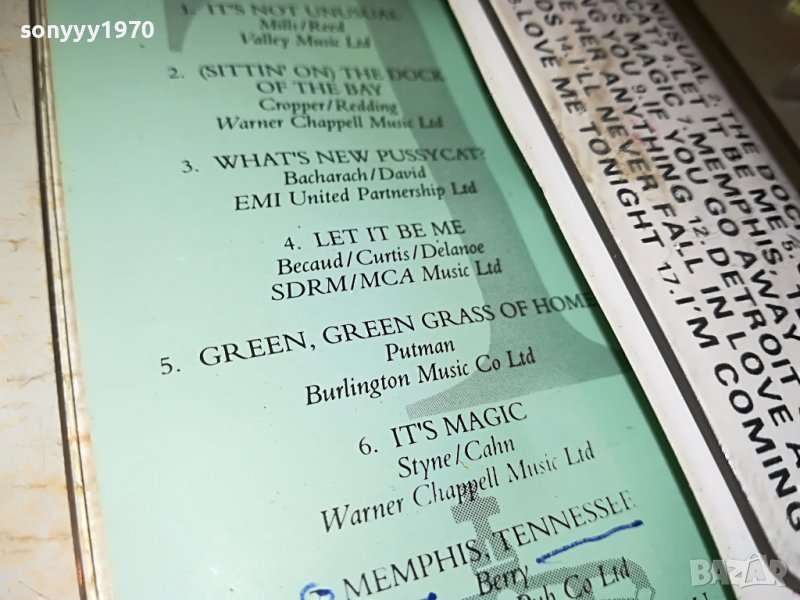 sonyyy1970
1. IT'S NOT UNUSUAL
Mills/Reed
Valley Music Ltd
2. (SITTIN' ON) THE DOCK
OF THE BAY
Cropper/Redding
Warner Chappell Music Ltd
3. WHAT'S NEW PUSSYCAT?
Bacharach/David
EMI United Partnership Ltd
4. LET IT BE ME
Becaud/Curtis/Delanoe
SDRM/MCA Music Ltd
5. GREEN, GREEN GRASS OF HOME
Putman
Burlington Music Co Ltd
6. IT'S MAGIC
Styne/Cahn
Warner Chappell Music Ltd
MEMPHIS, TENNESSEE
Berry
Co Ltd
THE DOCK
CAT? 4.LET IT BE ME 5.
'S MAGIC 7.MEMPHIS,
NG YOU 9.IF YOU GO AWAY
HER ANYTHING 12.DETROIT
DS 14.I'LL NEVER FALL IN LOVE A
LOVE ME TONIGHT 17.I'M COMING
BAZAR
.bg